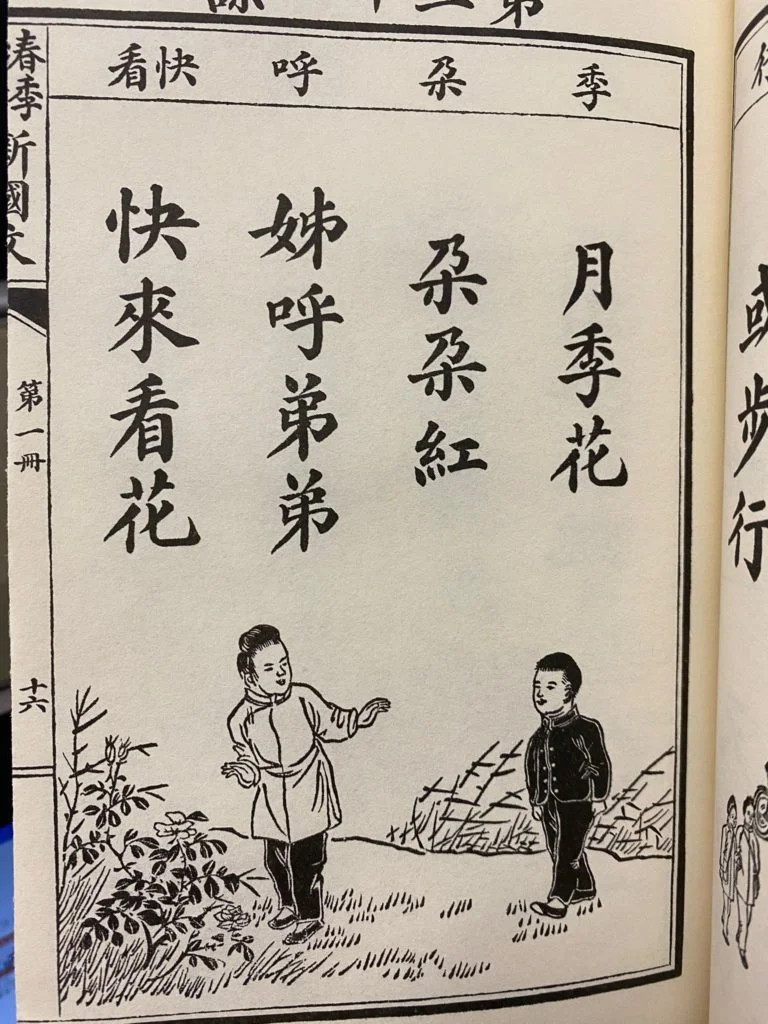 季
朵
呼
快看
月季花
朵朵紅
姊呼弟弟
快來看花
春季新國文
第一冊
十六
或步行